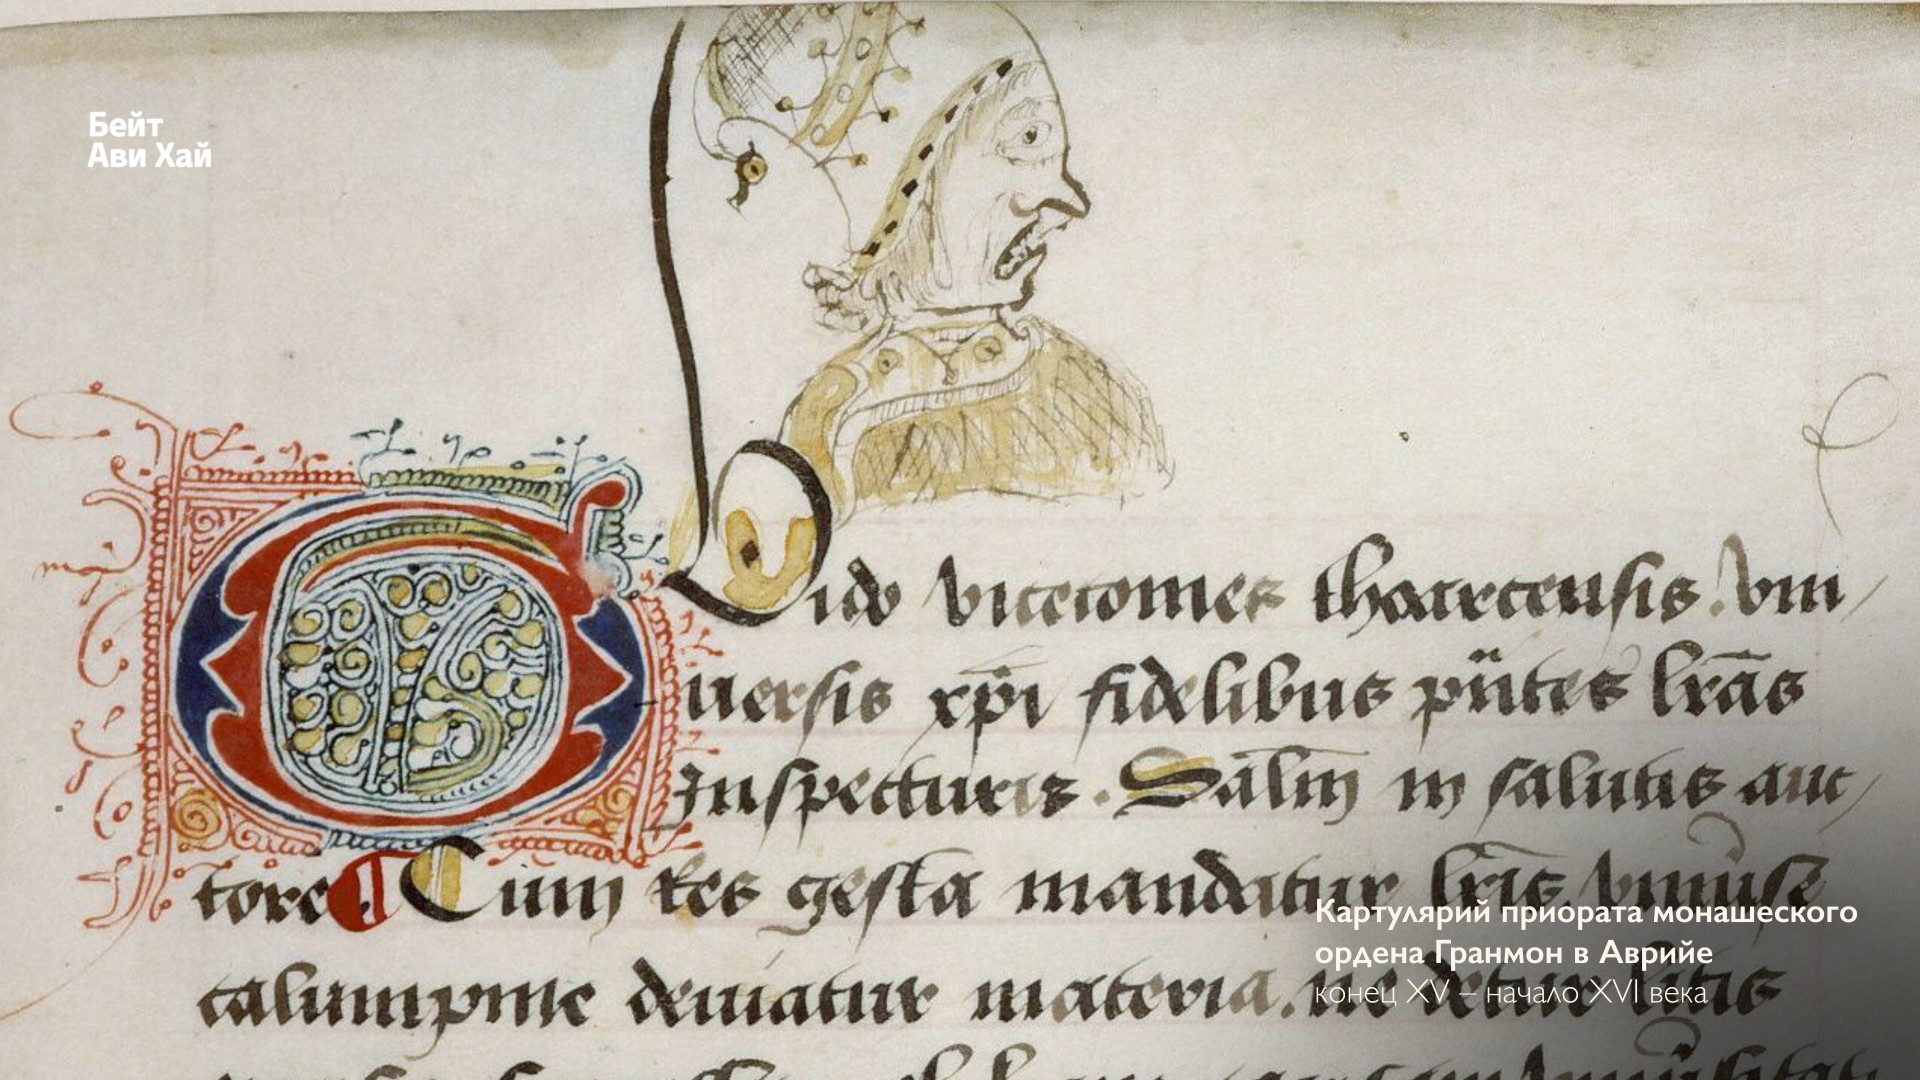 Бейт
Ави Хай
uido vicecomes thoarcensis. vni
uersis xp̄i fidelibus p̄ntes lr̄as
Inspecturis. Salm̄ in salutis auc
tore Cum Res gesta mandatur lr̄is
calumpnie deuiatur materia. ne detur litis
Картулярий приората монашеского
ордена Гранмон в Аврийе
конец XV – начало XVI века